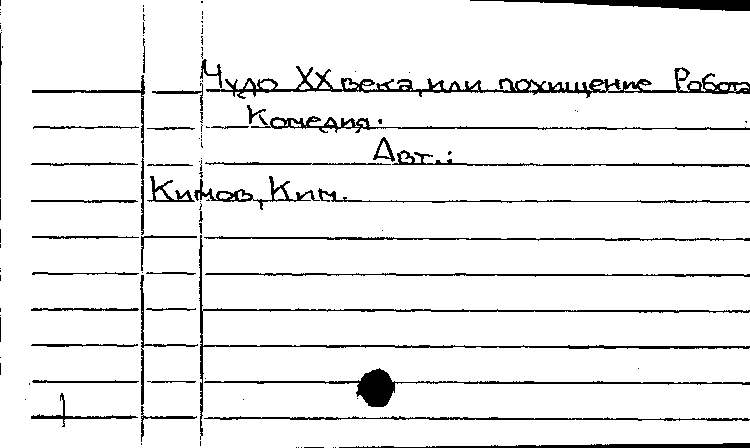 Чудо XX века, или похищение Робота
Комедия.
Авт.:
Кимов, Ким.